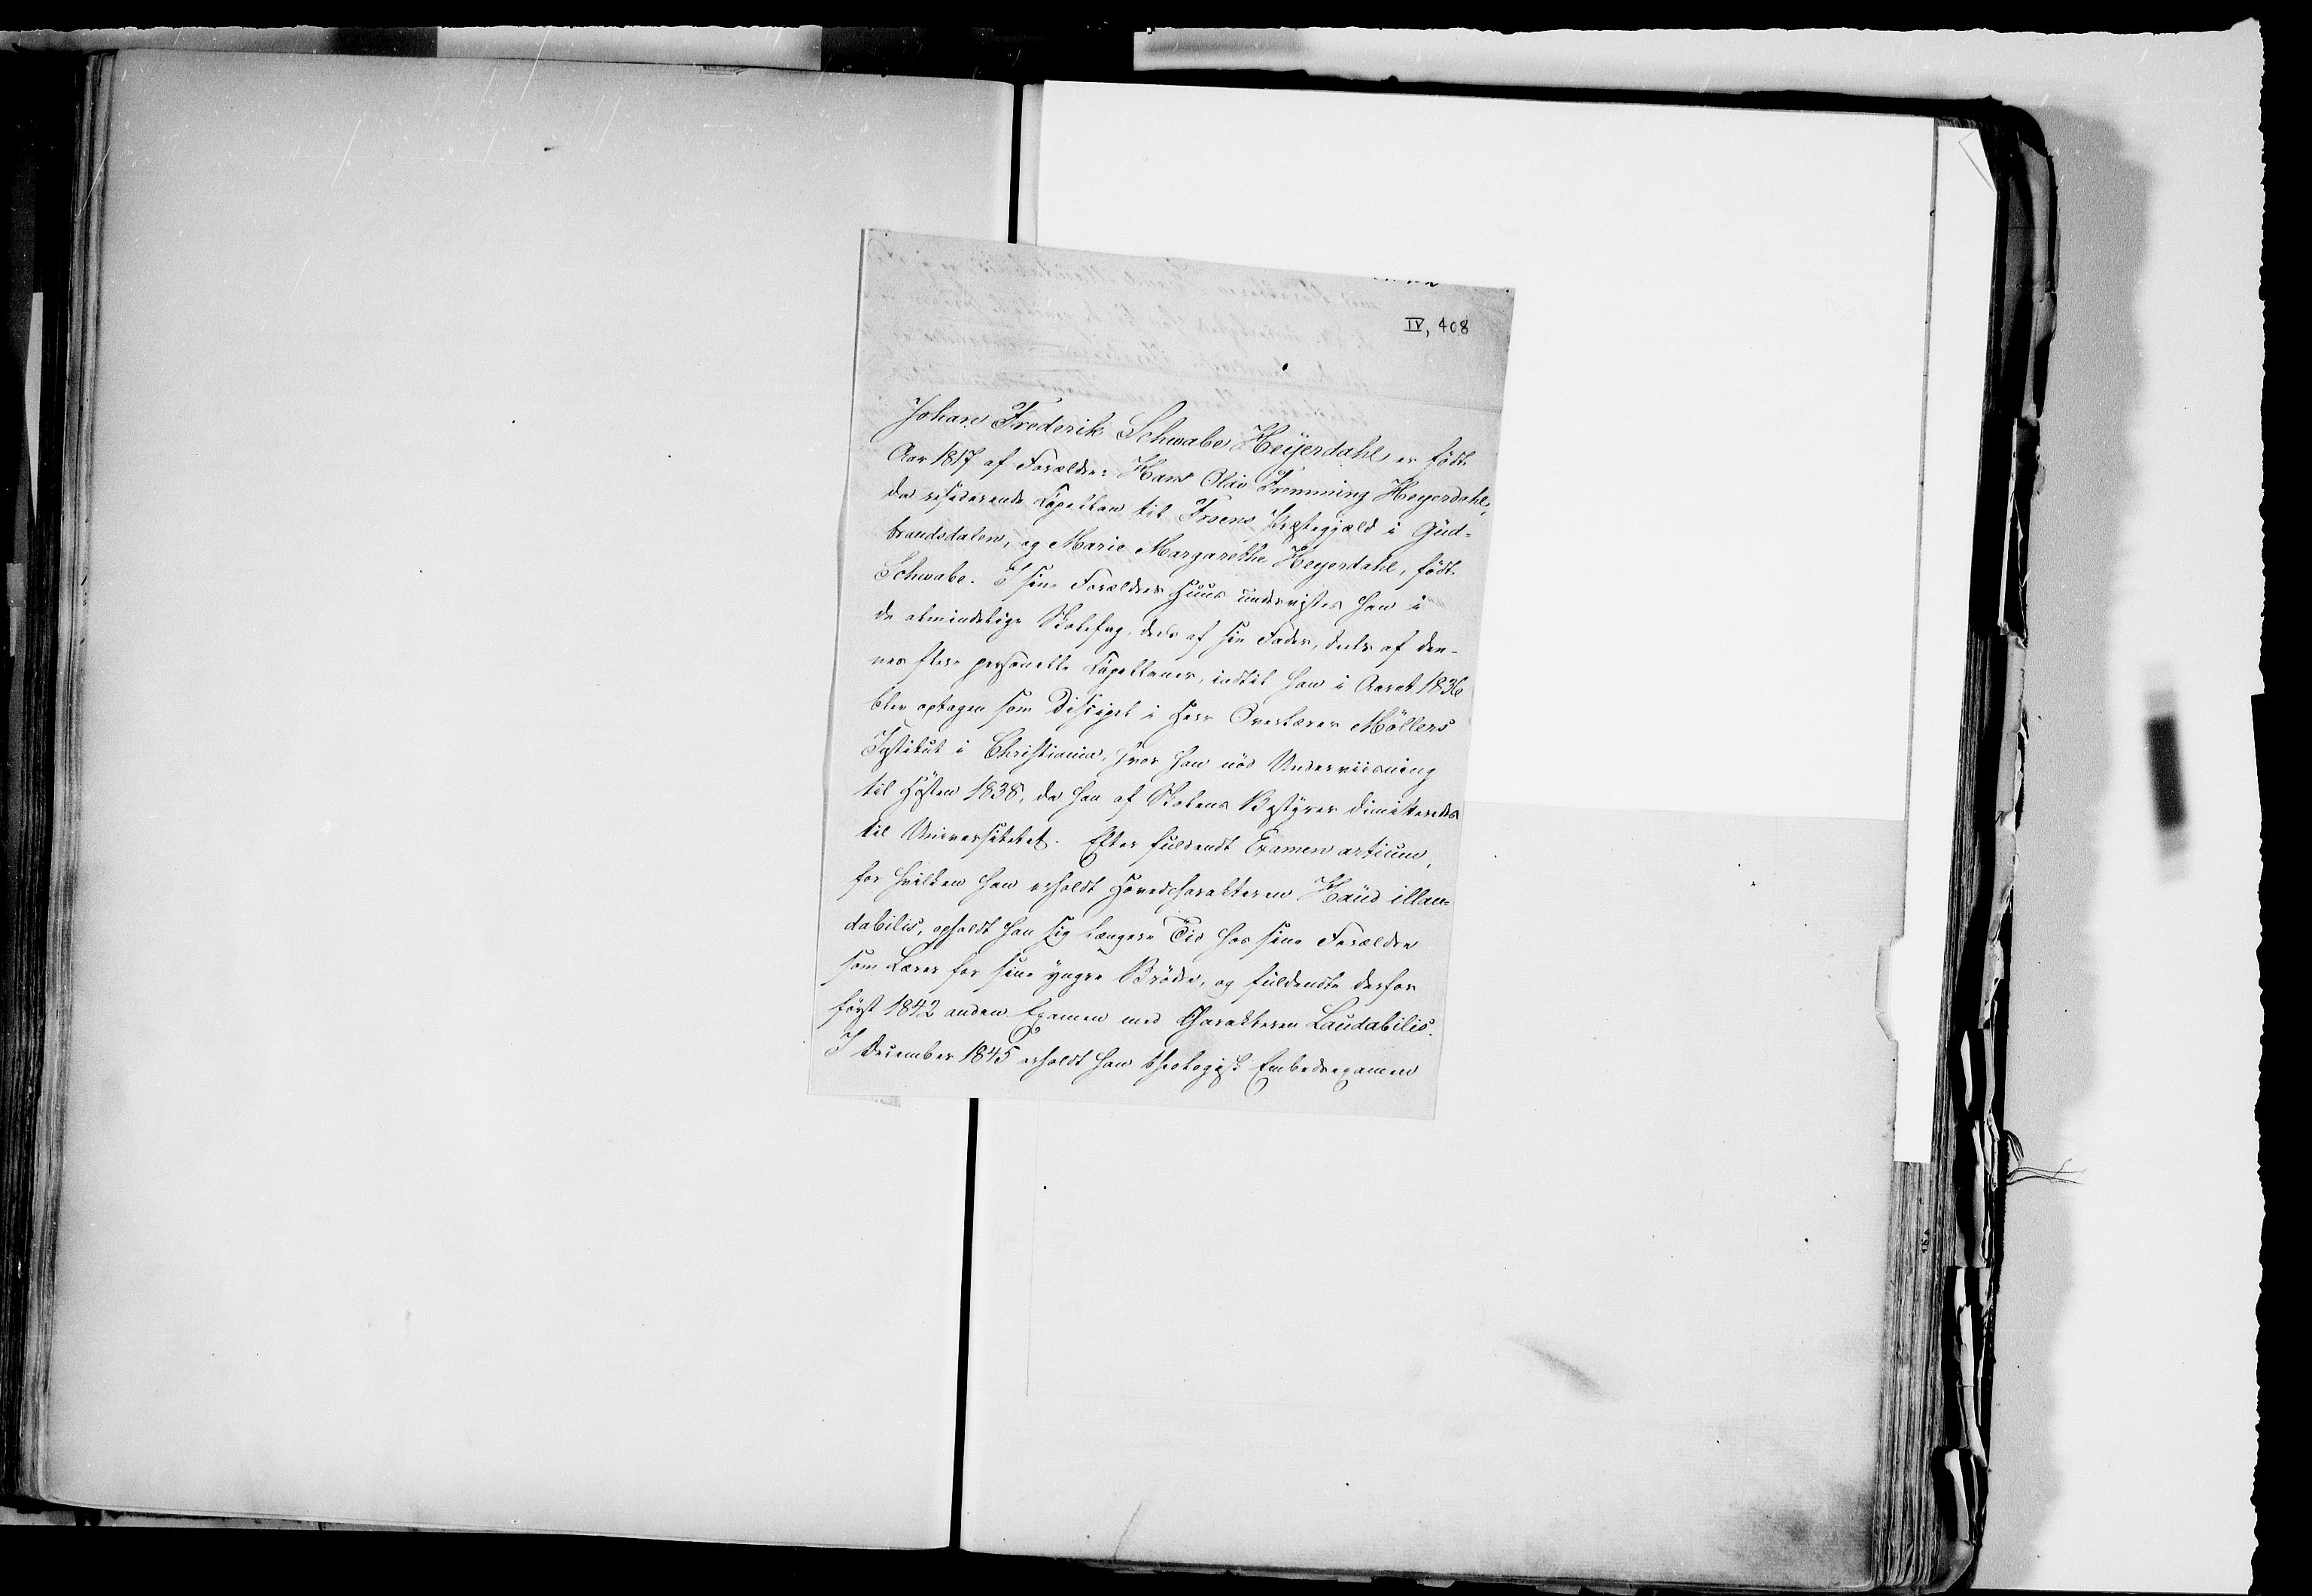 IV, 408
Johan Frederik Schwabe Heÿerdahl er født
Aar 1817 af Forældre: Hans Olav Fremming Heyerdahl,
da residerende Capellan til Froens Præstegjæld i Gud-
brandsdalen, og Marie Margarethe Heyerdahl, født
Schwabe. I sine Forældres Huus undervistes han i
de almindelige Skolefag, dels af sin Fader, dels af den-
nes flere personelle Capellaner, indtil han i Aaret 1836
blev optagen som Discipel i Herr Overlærer Møllers
Institut i Christiania, hvor han nød Underviisning
til Høsten 1838, da han af Skolens Bestyrer dimitteredes
til Universitetet. Efter fuldendt Examen artium,
for hvilken han erholdt Hovedcharakteren Haud illau-
dabilis, opholdt han sig længere Tid hos sine Forældre
som Lærer for sine yngre Brødre, og fuldendte derfor
først 1842 anden Examen med Charakteren Laudabilis.
I December 1845 erholdt han theologisk Embedsexamen